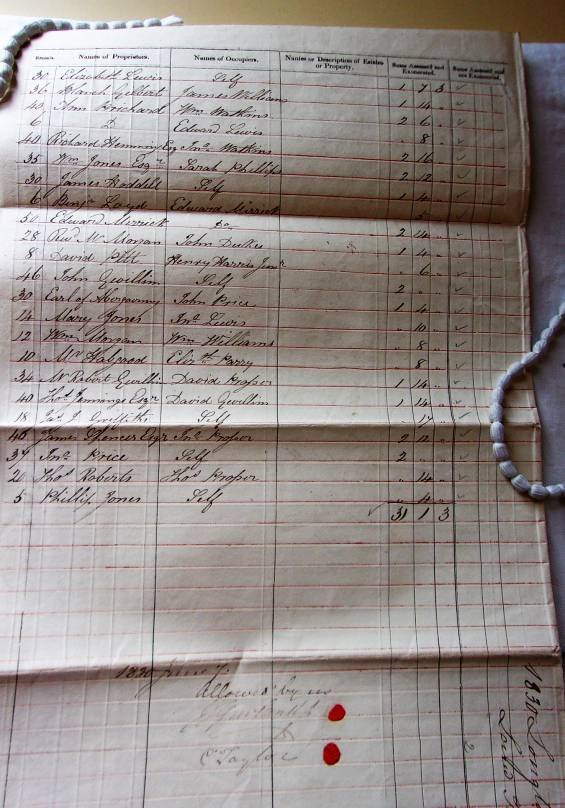 Names of Proprietors. Names of Occupiers. Names or Description of Estates or Property. Sums Assessed and Exonerated. Sums Assessed and not Exonerated.
30 Elizabeth Lewis Self 1 7 3
36 Gilbert James Williams 1 14 "
40 Ann Prichard Wm Watkins 2 6 "
6 Do Edward Lewis " 8 "
40 Richard Hemming Esq Jno Watkins 2 16 "
35 Wm Jones Esqr Sarah Phillips 2 12 "
30 James Hoddell Self 1 4 "
6 Benjn Loyd Edward Merrick " 5 "
50 Edward Merrick Do 2 14 "
28 Revd Mr Morgan John 1 4 "
8 David Pitt Henry Harris Junr " 6 "
46 John Gwillim Self 2 " "
30 Earl of Abergavenny John Price 1 4 "
14 Mary Jones Jno Lewis " 10 "
12 Wm Morgan Wm Williams " 8 "
10 Mr Elizth Parry " 8 "
34 Mr Robert Gwillim David Prosser 1 14 "
40 Thos Esqr David Gwillim 1 14 "
18 Jas J Griffiths Self " 17 "
46 James Spencer Esqr Jno Prosser 2 12 "
37 Jno Price Self 2 " "
20 Thos Roberts Thos Prosser " 14 "
5 Phillip Jones Self " 4 "
31 1 3
1830 June 7.
Allowed by us
C Taylor
1830